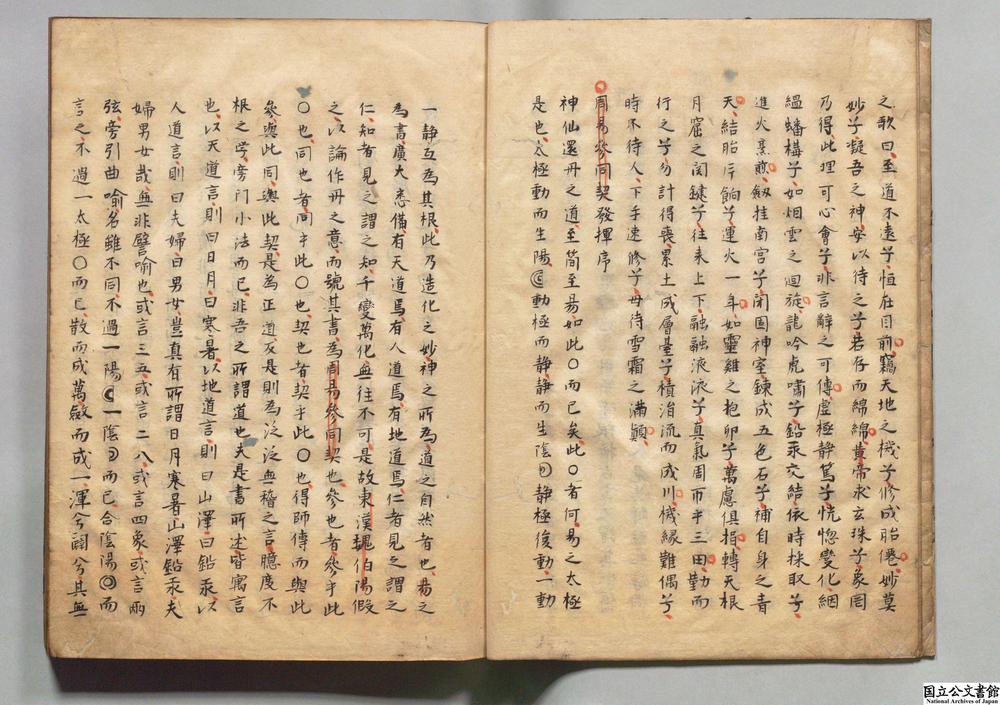 之歌曰至道不遠兮恒在目前竊天地之機兮修成胎僊妙莫
妙兮凝吾之神安以待之兮若存而綿綿黄帝求玄珠兮象罔
乃得此理可心會兮非言辭之可傳虚極静篤兮恍惚變化絪
緼蟠構兮如烟雲之迴旋龍吟虎嘯兮鉛汞交結依時採取兮
進火烹煎劔挂南宮兮閉固神室鍊成五色石兮補自身之青
天結胎片餉兮運火一年如靈雞之抱卵兮萬慮俱捐轉天根
月窟之関鍵兮往来上下融融液液兮真氣周帀乎三田勤而
行之兮勿計得喪累土成層臺兮積涓流而成川機縁難偶兮
時不待人下手速修兮毋待雪霜之満顛
周易參同契發揮序
神仙還丹之道至簡至易如此〇而已矣此〇者何易之太極
是也太極動而生陽動極而静静而生陰静極復動一動
一静互為其根此乃造化之妙神之所為道之自然者也易之
為書廣大悉備有天道焉有人道焉有地道焉仁者見之謂之
仁知者見之謂之知千變萬化無往不可是故東漢魏伯陽假
之以論作丹之意而號其書為周易參同契也參也者參乎此
〇也同也者同乎此〇也契也者契乎此〇也得師傳而與此
參與此同與此契是為正道反是則為泛泛無稽之言臆度不
根之学旁門小法而已非吾之所謂道也夫是書所述皆寓言
也以天道言則曰日月曰寒暑以地道言則曰山澤曰鉛汞以
人道言則曰夫婦曰男女豈真有所謂日月寒暑山澤鉛汞夫
婦男女哉無非譬喻也或言三五或言二八或言四象或言兩
弦旁引曲喻名雖不同不過一陽一陰而已合陰陽而
言之不過一太極〇而已散而成萬斂而成一渾兮闢兮其無
国立公文書館
National Archives of Japan